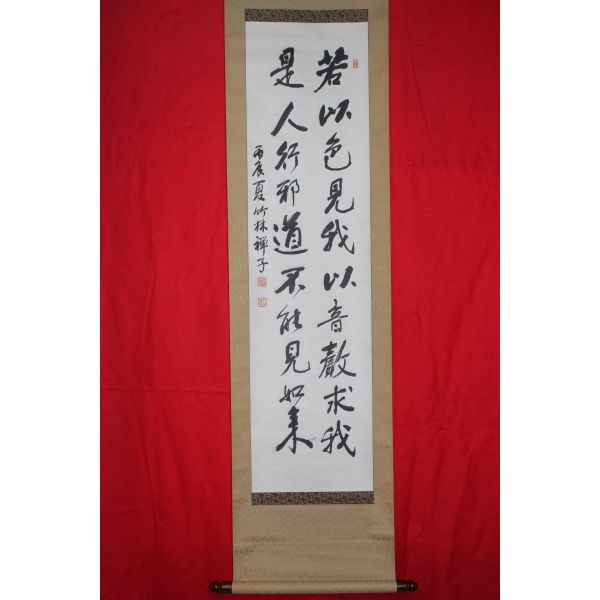 若以色見我以音聲求我
是人行邪道不能見如來
丙辰夏竹林禪子